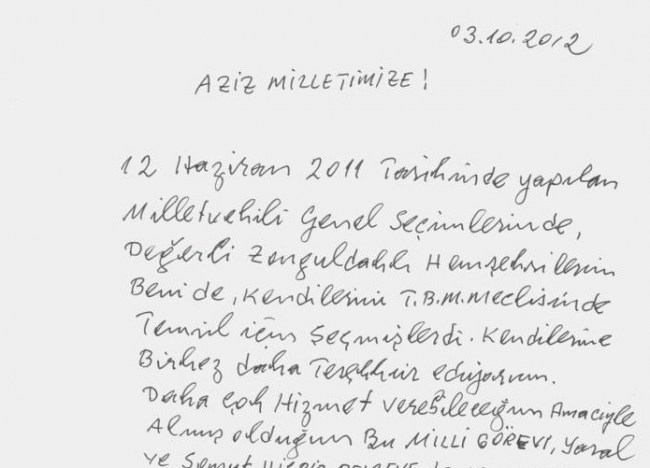 03.10.2012
AZİZ MİLLETİMİZE!
12 Haziran 2011 Tarihinde yapılan
Milletvekili Genel Seçimlerinde,
Değerli Zonguldaklı Hemşehrilerim
Beni de, Kendilerini T.B.M.Meclisinde
Temsil için Seçmişlerdi. Kendilerine
Birkez daha Teşekkür ediyorum.
Daha çok Hizmet verebileceğim Amacıyle
Almış olduğum Bu MİLLİ GÖREVİ, Yasal
ve Somut Hiçbir